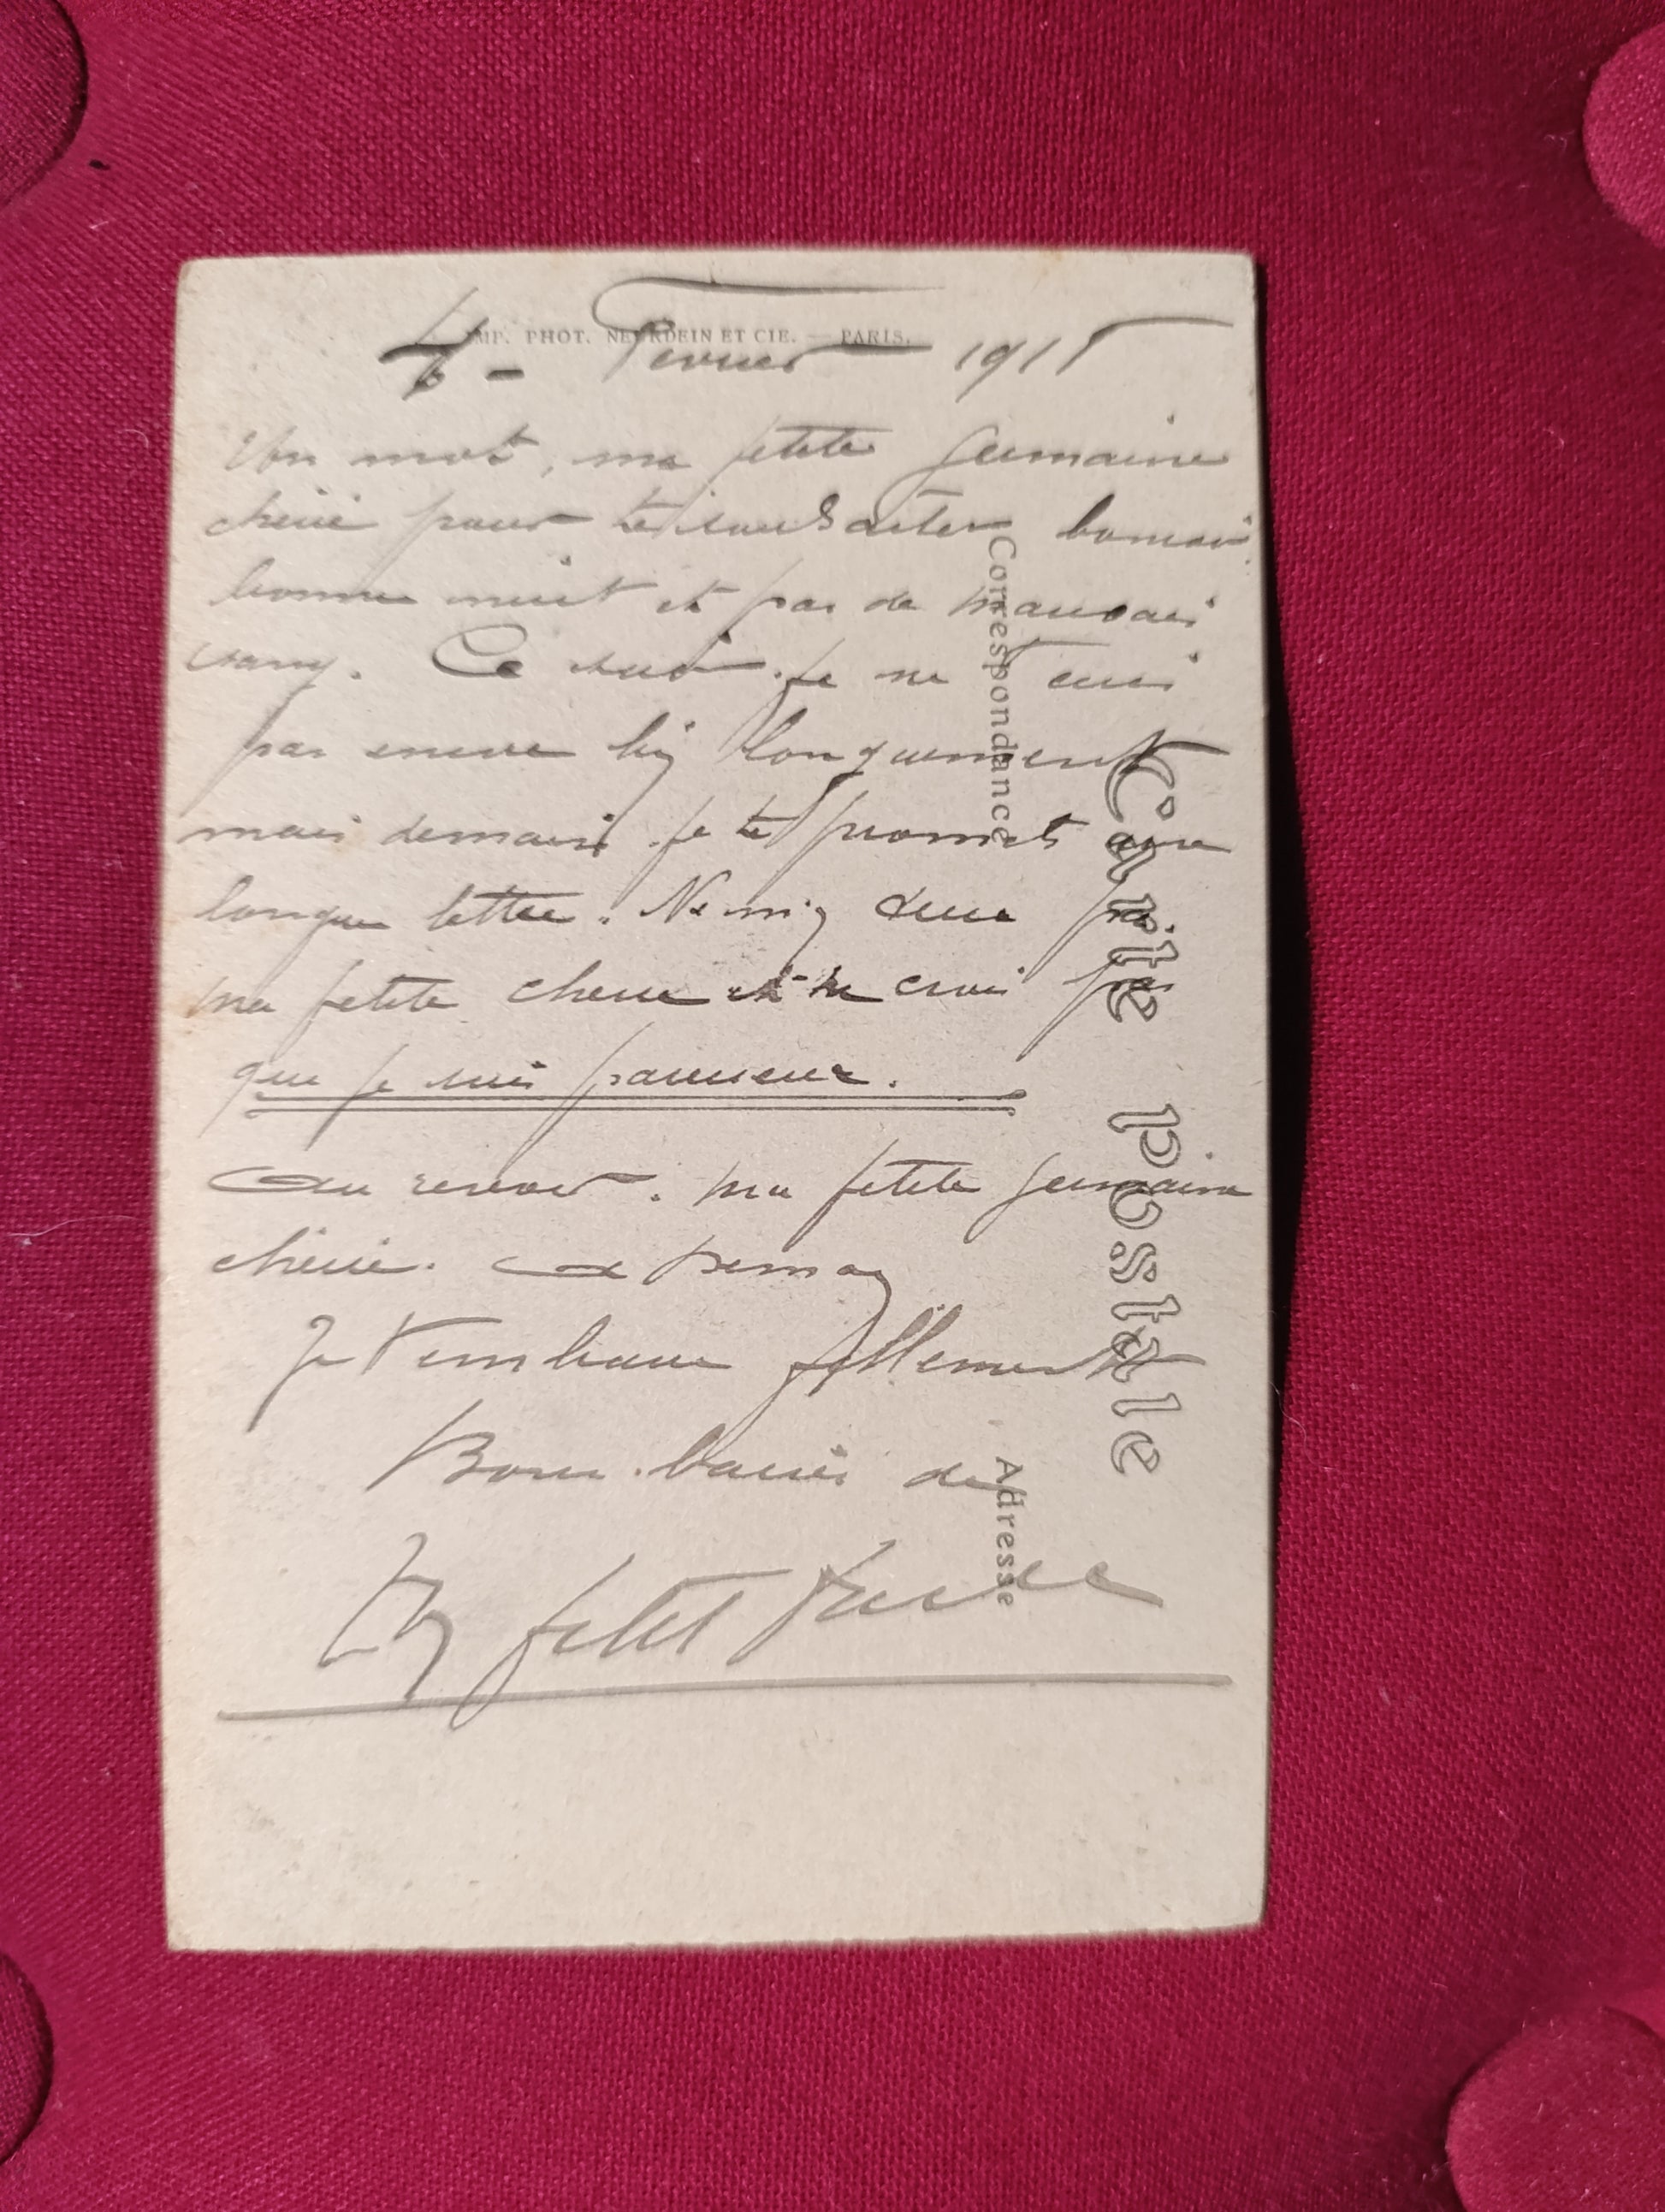 IMP. PHOT. NEURDEIN ET CIE. — PARIS.
4 - Fevrier 1915
Un mot, ma petite Germaine
chérie pour te souhaiter bonsoir,
bonne nuit et pas de mauvais
sang. Ce soir je ne t'écris
pas encore bien longuement
mais demain je te promets une
longue lettre. Ne m'en veux pas
ma petite cherie et ne crois pas
que je suis paresseux.
Au revoir. ma petite Germaine
chérie. a demain
Je t'embrasse follement
Bons baisers de
Ton petit
Correspondance
Adresse
Carte postale